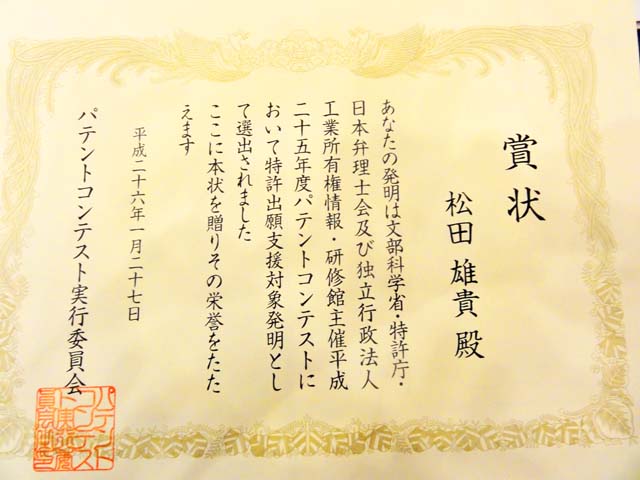 賞状
松田 雄貴 殿
あなたの発明は文部科学省・特許庁・
日本弁理士会及び独立行政法人
工業所有権情報・研修館主催平成
二十五年度パテントコンテストに
おいて特許出願支援対象発明とし
て選出されました
ここに本状を贈りその栄誉をたた
えます
平成二十六年一月二十七日
パテントコンテスト実行委員会
パテント
コンテス
ト実行委
員会之印